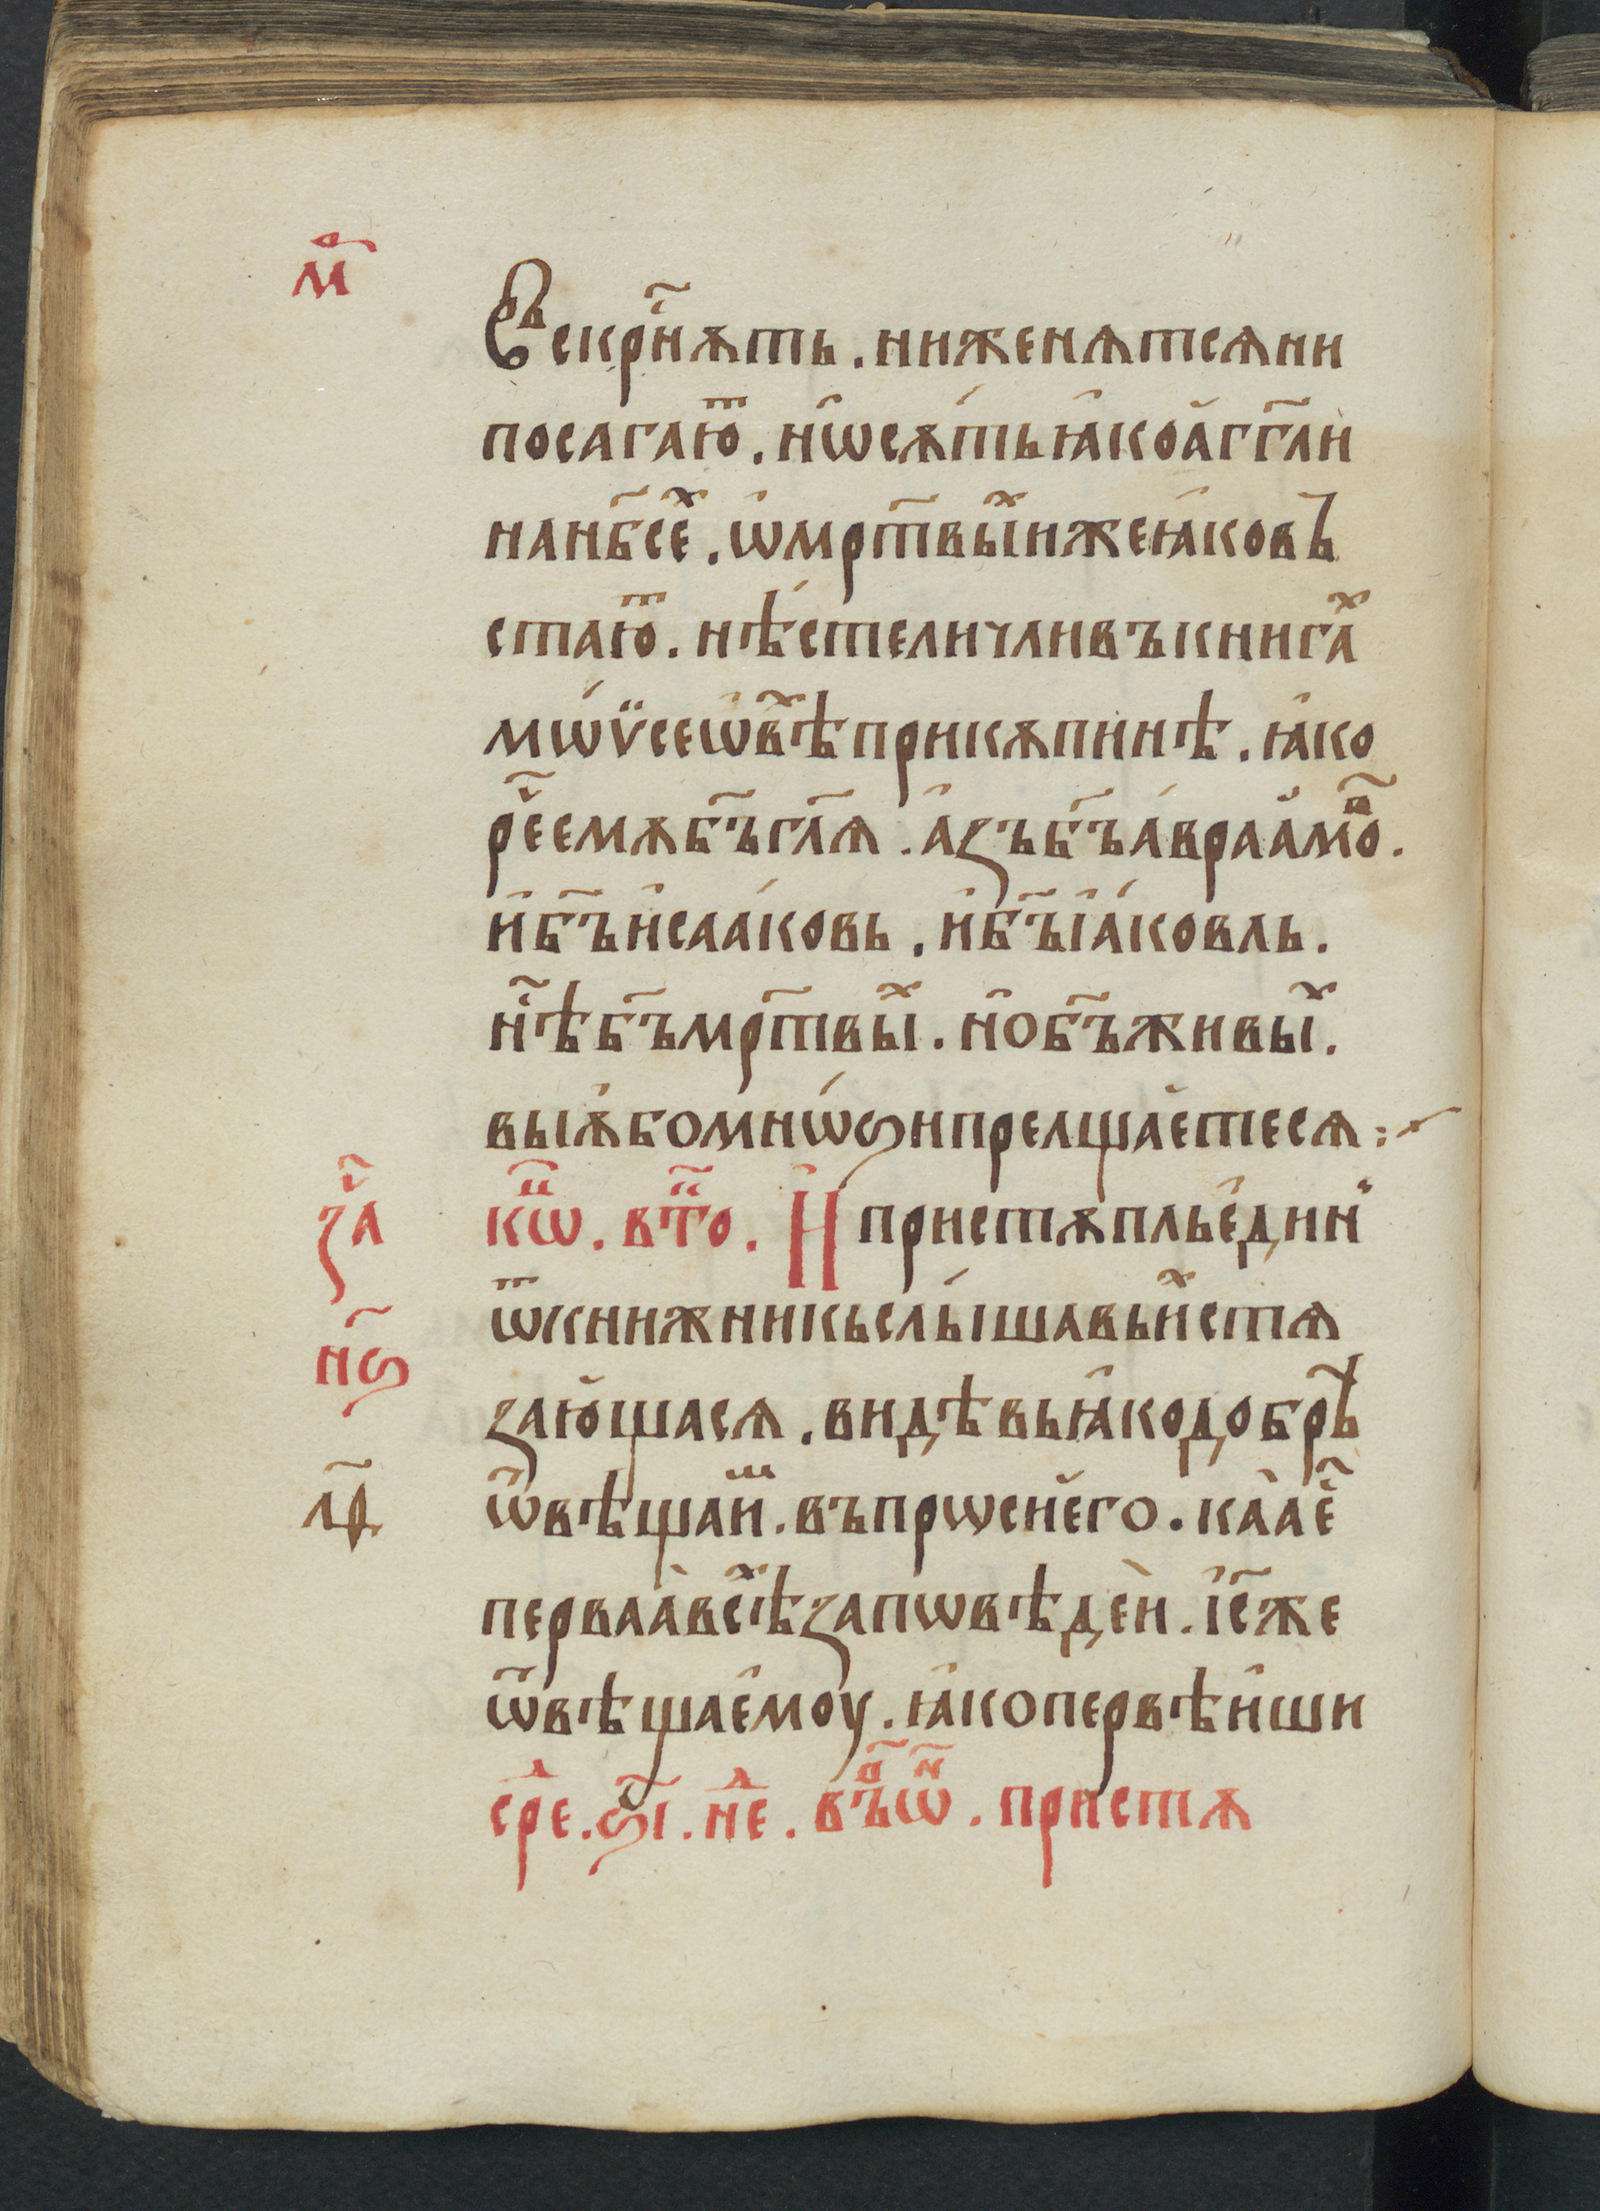 м҃
Въскрⷭ҇нѫть . ниженѧтсѧни
посагаюⷮ . нѡ̂сѫ́тьꙗ҆коа҆́гг҃ли
нанб҃сеⷯ . ѡ҆мр҃твыⷯижеꙗ҆́ковъ
стаюⷮ . нѣ́стеличливъкнигаⷯ
мѡѵ̈сеѡ҆вⷯѣприкѫпинѣ . ꙗ҆ко
рⷱ҇еемѫбг҃ъгл҃ѧ . а҆зъбг҃ъа҆враа҆моⷡ .
и҆бг҃ъи҆саа́ковь . и҆бг҃ъіа́ковль .
нⷭ҇ѣбг҃ъмр҃твыⷯ . но҆бг҃ъживыⷯ .
выѫ҆бомнѡ́ѕипрелщаетесѧ :~
зⷱ҇а
кѡⷩ҇ . втⷪ҇о . И пристѫпльедин
н҃ѕ
ѿкнижникьслы́шавьи҆хстѧ
зающасѧ . видѣвьꙗ҆кодобрѣ
л҃ѱ
ѿвѣщаиⷨ . въпрѡсиего . каꙗаеⷭ҇
перваа҆всⷯѣзапѡвѣдеи . іс҃же
ѿвѣщаемоу . ꙗ҆копервѣиши
сⷣре . ѕ҃і . неⷣ . въⷡ҇ѡⷩ҇ . пристѫ